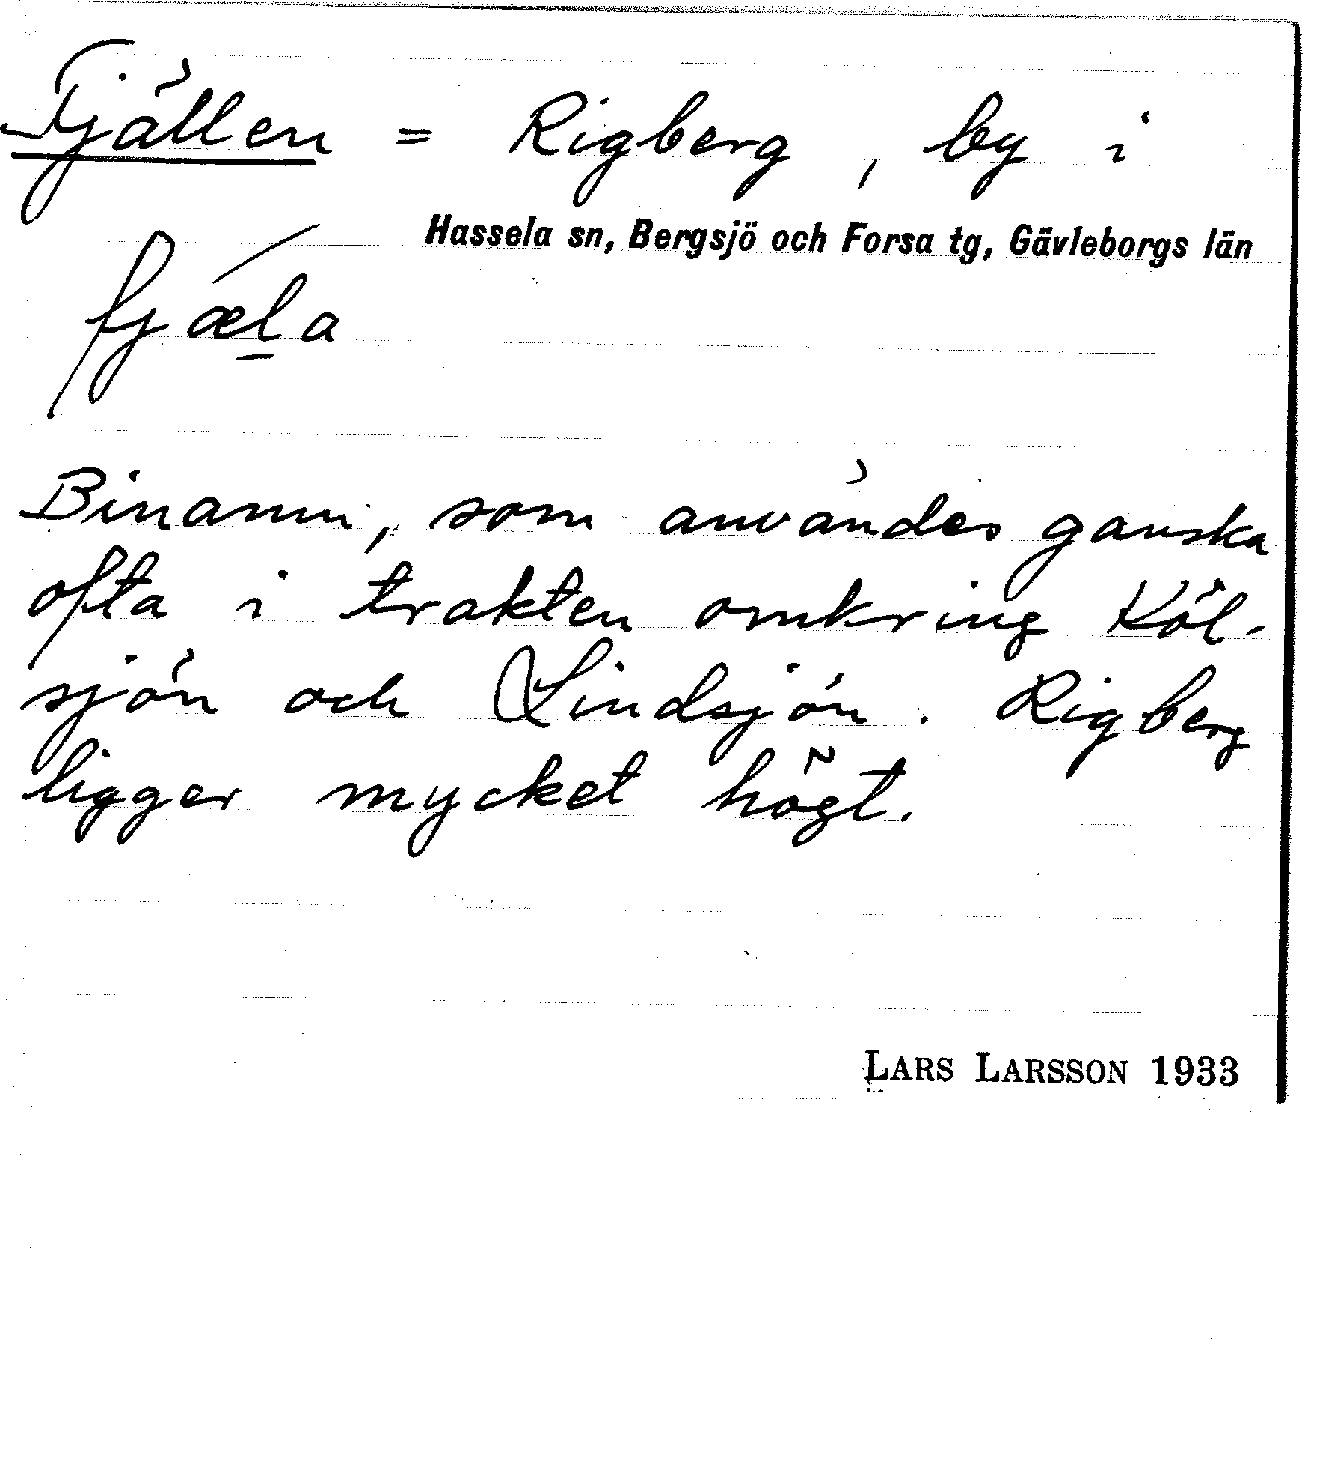 Fjällen = Rigberg, by i
Hassela sn, Bergsjö och Forsa tg, Gävleborgs län
fjæla
Binamn, som användes ganska
ofta i trakten omkring Köl-
sjön och Lindsjön. Rigberg
ligger mycket högt.
LARS LARSSON 1933